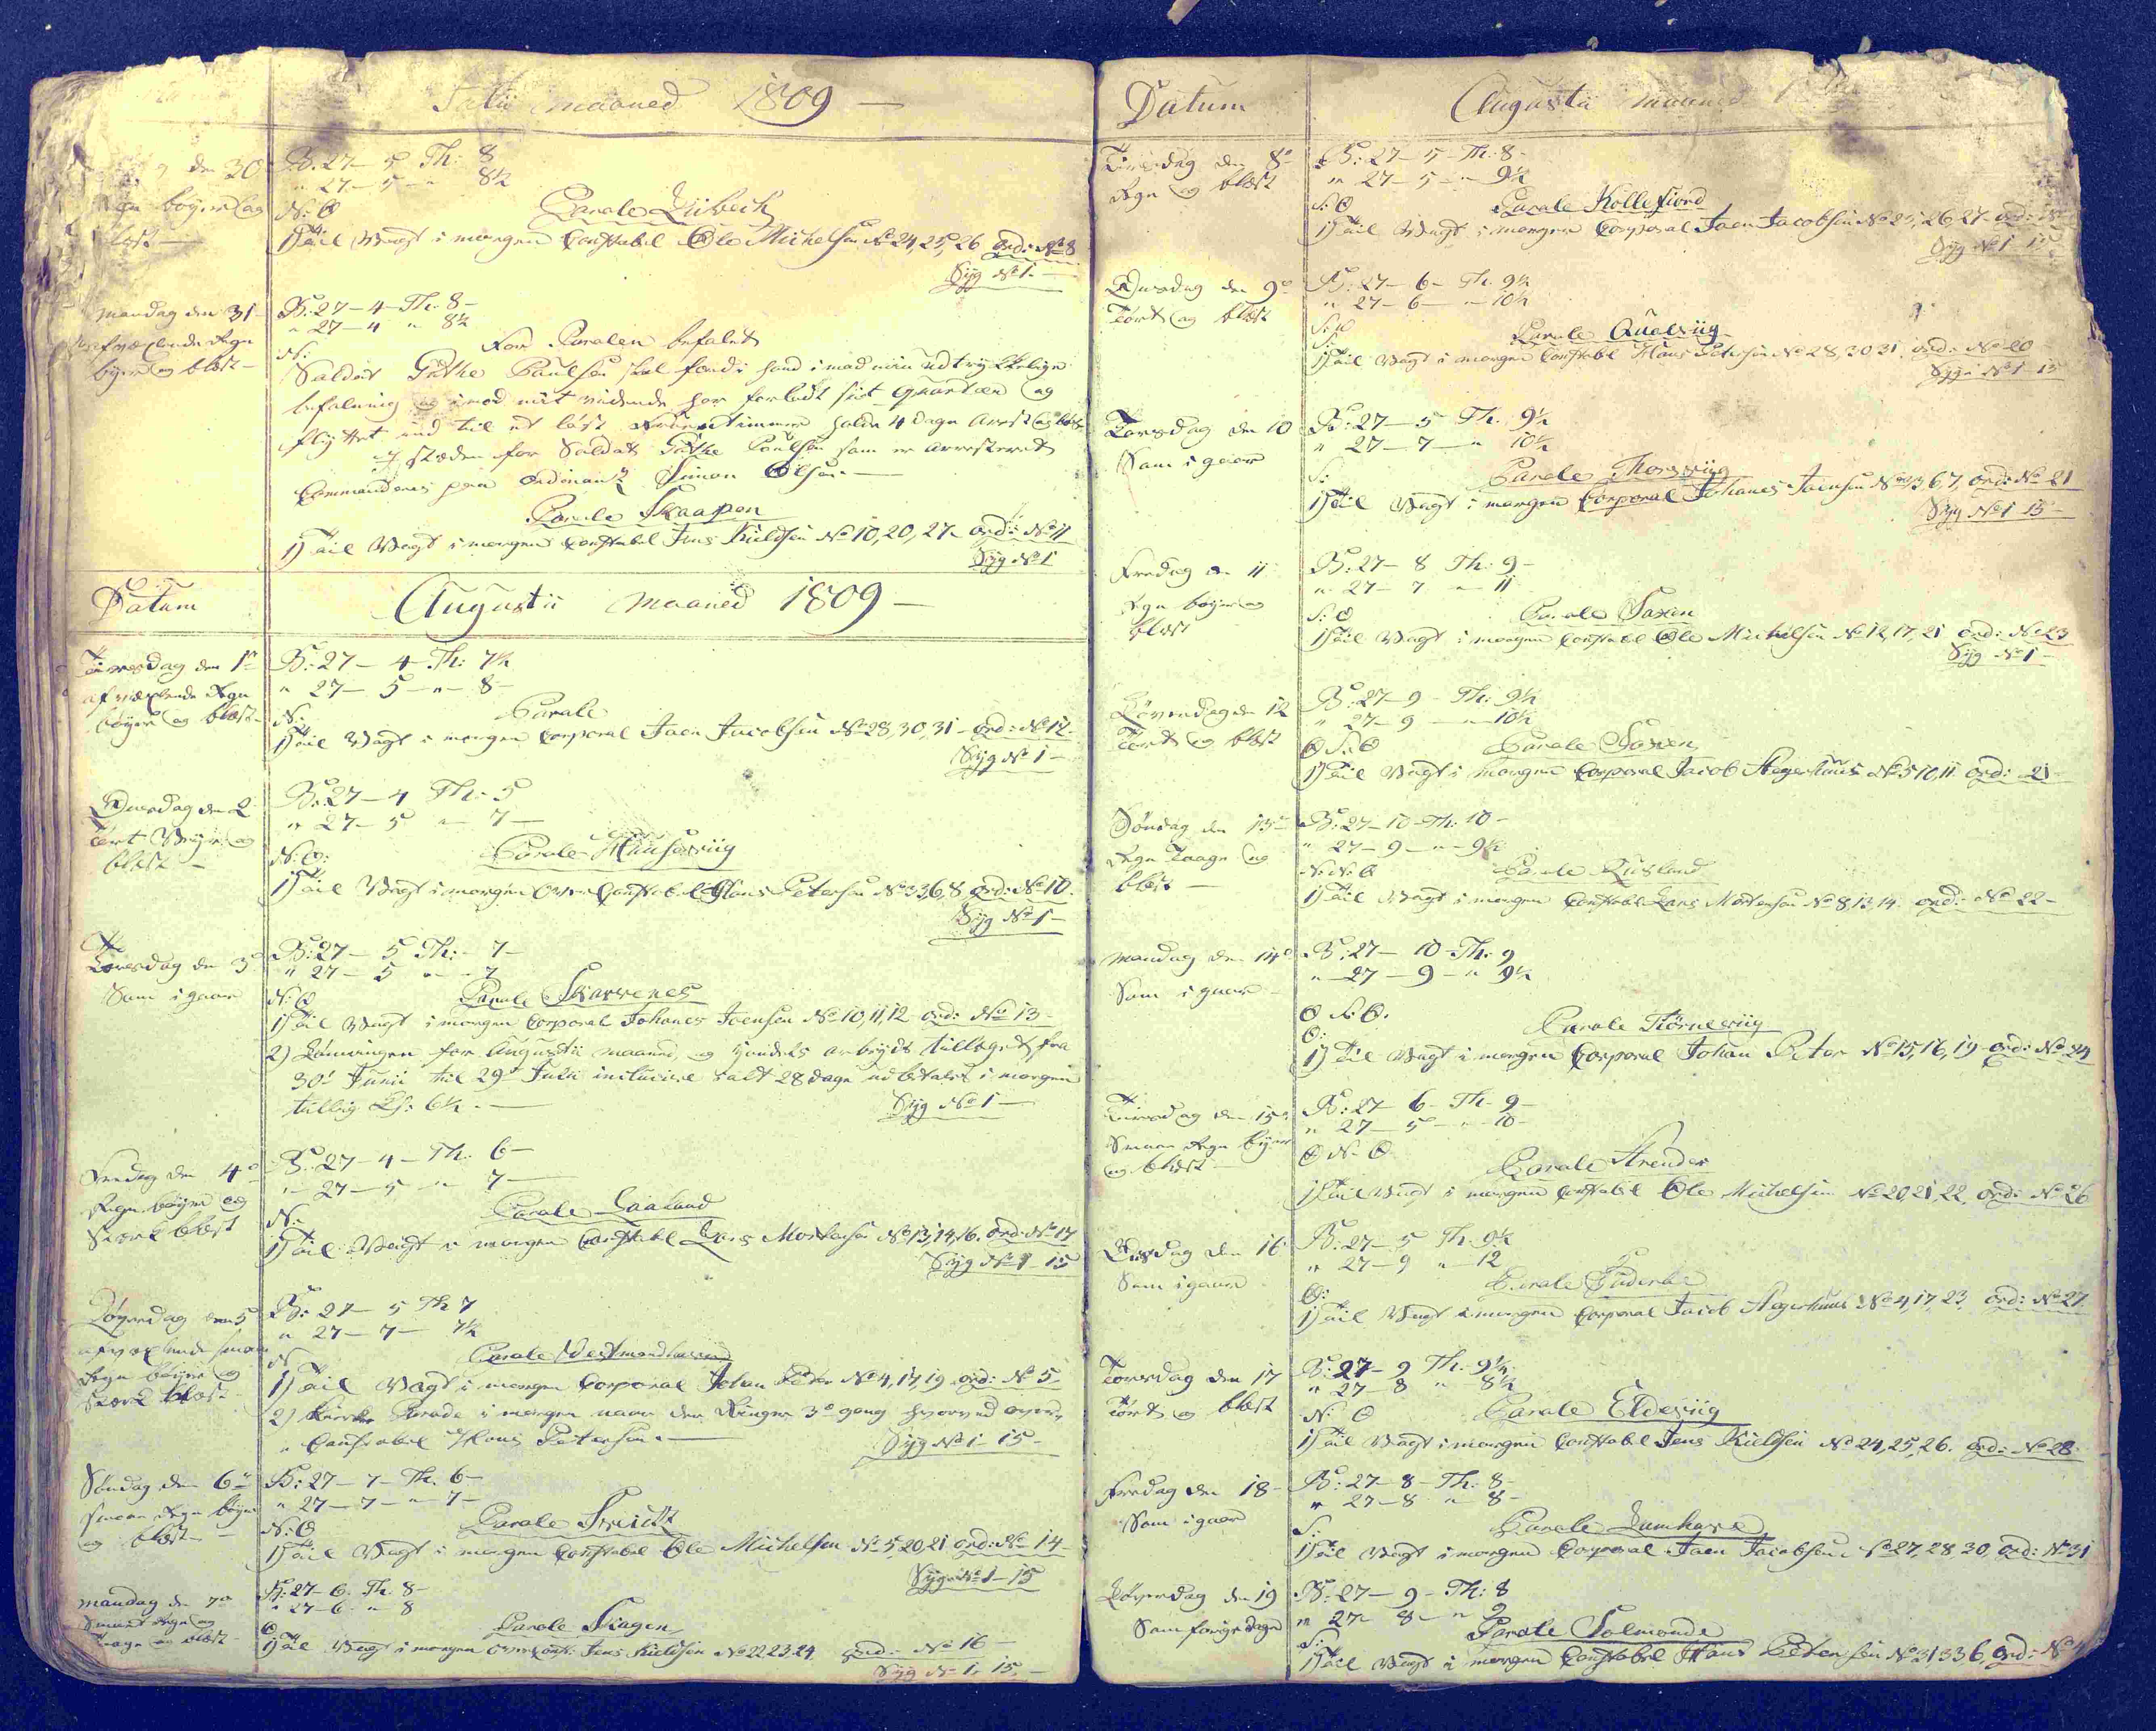 Julii maaned 1809 —
den 30
Regn bÿger og
blæst —
B. 27 — 5 Th: 8
" 27 — 5 — " 8½
N: O
Parole Lübech
1) Til Vagt i morgen Constabel Ole Michelsen No 24, 25, 26 Ord: No 8
Syg No 1. —
Mandag den 31
afvexlende Regn
byger og blæst —
B: 27 — 4 — Th: 8 —
" 27 — 4 " 8½
N:
For Parolen befalet
Soldat Gutke Poulsen skal fordi hand imod min udtrykkelige
befalning og imod mit vidende har forladt sit Quarteer og
flyttet ind til et løst Fruentimmer holde 4 Dages Arrest
I stæden for Soldat Gutke Poulsen som er arresteret
Commanderes paa Ordinantz Simon Olsen —
Parole Skaapen
1) Til Vagt i morgen Constabel Jens Kieldsen No 10, 20, 27 Ord: No 11
Syg No 1
Datum
Augustii maaned 1809 —
Tirsdag den 1te
afvexlende Regn
bøger og blæst —
B: 27 — 4 — Th: 7½
" 27 — 5 — " 8 —
N:
Parole
1) Til Vagt i morgen Corporal Joen Jacobsen No 28, 30, 31 — Ord: No 12
Syg No 1 —
Onsdag den 2
Tørt Vejr og
blæst —
B: 27 — 4 Th: 5
" 27 — 5 " 7 —
N: O:
Parole Husevig
1) Til Vagt i morgen Over Constabel Hans Petersen No 3, 6, 8 Ord: No 10
Syg No 1 —
Torsdag den 3
Som i gaar
B: 27 — 5 Th: 7 —
" 27 — 5 " 7
N: O
Parole Skarvenes
1) Til Vagt i morgen Corporal Johanes Joensen No 10, 11, 12 Ord: No 13 —
2) Lønningen for Augustii maaned, og haandels arbeyds tillæget fra
30t Junii til 29t Julii inclusive er 28 dage udbetales i morgen
tillig Kl: 6½ —
Syg No 1 —
Fredag den 4
Regn bøger og
Stærk blæst
B: 27 — 4 — Th: 6 —
" 27 — 5 " 7 —
N:
Parole Laaland
1) Til Vagt i morgen Constabel Lars Mortensen No 13, 14, 16. Ord: No 17
Syg No 1 — 15
Løverdag den 5
afvexlende smaa
Regn bøger og
Stærk blæst
B: 27 — 5 Th 7
" 27 — 7 — 7½
N
Parole Vestmanhavn
1) Til Vagt i morgen Corporal Johan Peter No 4, 17, 19 Ord: No 5
2) Kirke Parade i morgen naar der Ringes 3de gang hvorved over
" Constabel Hans Petersen —
Syg No 1 — 15 —
Søndag den 6
smaa Regn bøger
og blæst —
B: 27 — 7 — Th. 6 —
" 27 — 7 — " 7 —
N: O
Parole Svindt
1) Til Vagt i morgen Constabel Ole Michelsen No 5, 20, 21 Ord: No 14
Syg No 1 — 15
Mandag den 7
Smaat Regn og
Taage og blæst
B: 27 — 6 Th. 8 —
" 27 — 6 " 8
O
Parole Skagen
1) Til Vagt i morgen Over Const: Jens Kieldsen No 22 23 24 Ord: No 16 —
Syg No 1, 15 —
Datum
Augustii maaned
Tirsdag den 8
Regn og blæst
B: 27 — 5 — Th: 8 —
" 27 — 5 — " 9½
S: O
Parole Kollefiord
1) Til Vagt i morgen Corporal Joen Jacobsen No 25, 26, 27 Ord:
Syg No 1 15
Onsdag den 9
Tørt og blæst
B: 27 — 6 — Th. 9½
" 27 — 6 — " 10½
Parole Qualviig
1) Til Vagt i morgen Constabel Hans Petersen No 28, 30 31. Ord: No 20
Syge No 1 — 15
Torsdag den 10
Som i gaar
B: 27 — 5 Th. 9½
" 27 — 7 — " 10½
S:
Parole Thorsviig
1) Til Vagt i morgen Corporal Johanes Joensen No 3 6 7, Ord: No 21
Syg No 1 15 —
Fredag den 11
Regn bøger og
blæst
B: 27 — 8 Th: 9 —
" 27 — 7 " 11
S: O
Parole Saxen
1) Til Vagt i morgen Constabel Ole Michelsen No 12, 17, 21 Ord: No 23
Syg No 1 —
Løverdag den 12
Tørt og blæst
B: 27 — 9 — Th: 9½
" 27 — 9 — " 10½
O S: O
Parole
1) Til Vagt i morgen Corporal Jacob Aagerhuus No 5 10 11 Ord: 21 —
Søndag den 13
Regn Taage og
blæst —
B: 27 — 10 — Th: 10 —
" 27 — 9 — " 9½
N: N: O
Parole Rusland
1) Til Vagt i morgen Constabel Lars Mortensen No 8, 13, 14 Ord: No 22 —
Mandag den 14
Som i gaar
B: 27 — 10 — Th: 9
" 27 — 9 — " 9½
O S: O.
O:
Parole Tiørnevig
1) Til Vagt i morgen Corporal Johan Peter No 15, 16, 19 Ord: No 24
Tirsdag den 15
Smaa Regn bøger
og blæst —
B: 27 — 6 — Th. 9 —
" 27 — 5 — " 10 —
O N: O
Parole Strender
1) Til Vagt i morgen Constabel Ole Michelsen No 20, 21, 22, Ord: No 26
Onsdag den 16
Som i gaar
B. 27 — 5 Th. 9½
" 27 — 9 " 12
O:
Parole
1) Til Vagt i morgen Corporal Jacob Aagerhuus No 4, 17, 23, Ord: No 27
Torsdag den 17
Tørt og blæst
B: 27 — 9 Th. 9½
" 27 — 8 " 8½
N: O
Parole Eldeviig
1) Til Vagt i morgen Constabel Jens Kieldsen No 24, 25, 26. Ord: No 28
Fredag den 18 —
Som i gaar
B: 27 — 8 — Th: 8 —
" 27 — 8 " 8 —
S:
Parole
1) Til Vagt i morgen Corporal Joen Jacobsen No 27, 28, 30, Ord: No 31
Løverdag den 19
Som forige dage
B: 27 — 9 — Th: 8
" 27 — 8 — " 9
S:
Parole Solmonde
1) Til Vagt i morgen Constabel Hans Petersen No 31 33 6, Ord: No